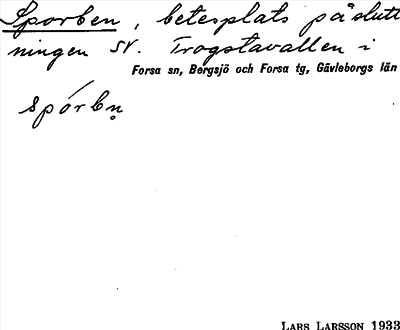 Sporben, betesplats på slutt
ningen SV. Trogstavallen i
Forsa sn, Bergsjö och Forsa tg, Gävleborgs län
spórbṇ
LARS LARSSON 1933